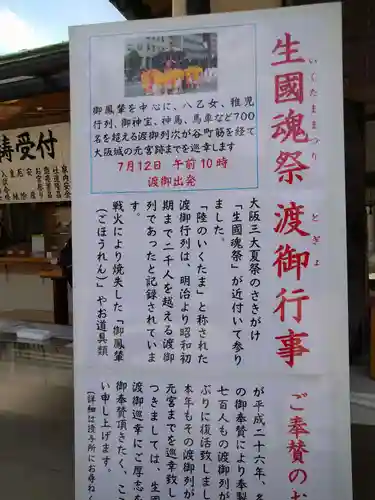 生國魂祭 渡御行事
いくたままつり
とぎょ
御鳳輦を中心に、八乙女、稚児
行列、御神宝、神馬、馬車など700
名を超える渡御列次が谷町筋を経て
大阪城の元宮跡までを巡幸します
7月12日 午前10時
渡御出発
大阪三大夏祭のさきがけ
「生國魂祭」が近付いて参り
ました。
「陸のいくたま」と称された
渡御行列は、明治より昭和初
期まで二千人を越える渡御
列であったと記録されていま
戦火により焼失した「御鳳輦
（ごほうれん）」やお道具類
ご奉賛のお
が平成二十六年、
の御奉賛により奉製
七百人もの渡御列が
ぶりに復活致しま
本年もその渡御列が
元宮までを巡幸致し
つきましては、生國
渡御巡幸にご厚志を
御奉賛頂きたく、こ
い申し上げます。
（詳細は授与所にお尋ねく
祷受付